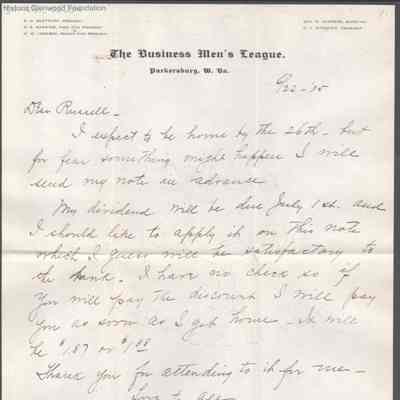 Historic Glenwood Foundation
The Business Men's League.
Parkersburg, W. Va.
6/22-'15
Dear Russell -
I expect to be home by the 26th - but
for fear something might happen I will
send my note in advance
My dividend will be due July 1st. and
I should like to apply it on this note
which I guess will be satisfactory to
the bank. I have no check so if
you will pay the discount I will pay
you as soon as I get home - It will
be $1.87 or $1.88
Thank you for attending to it for me -
Love to all